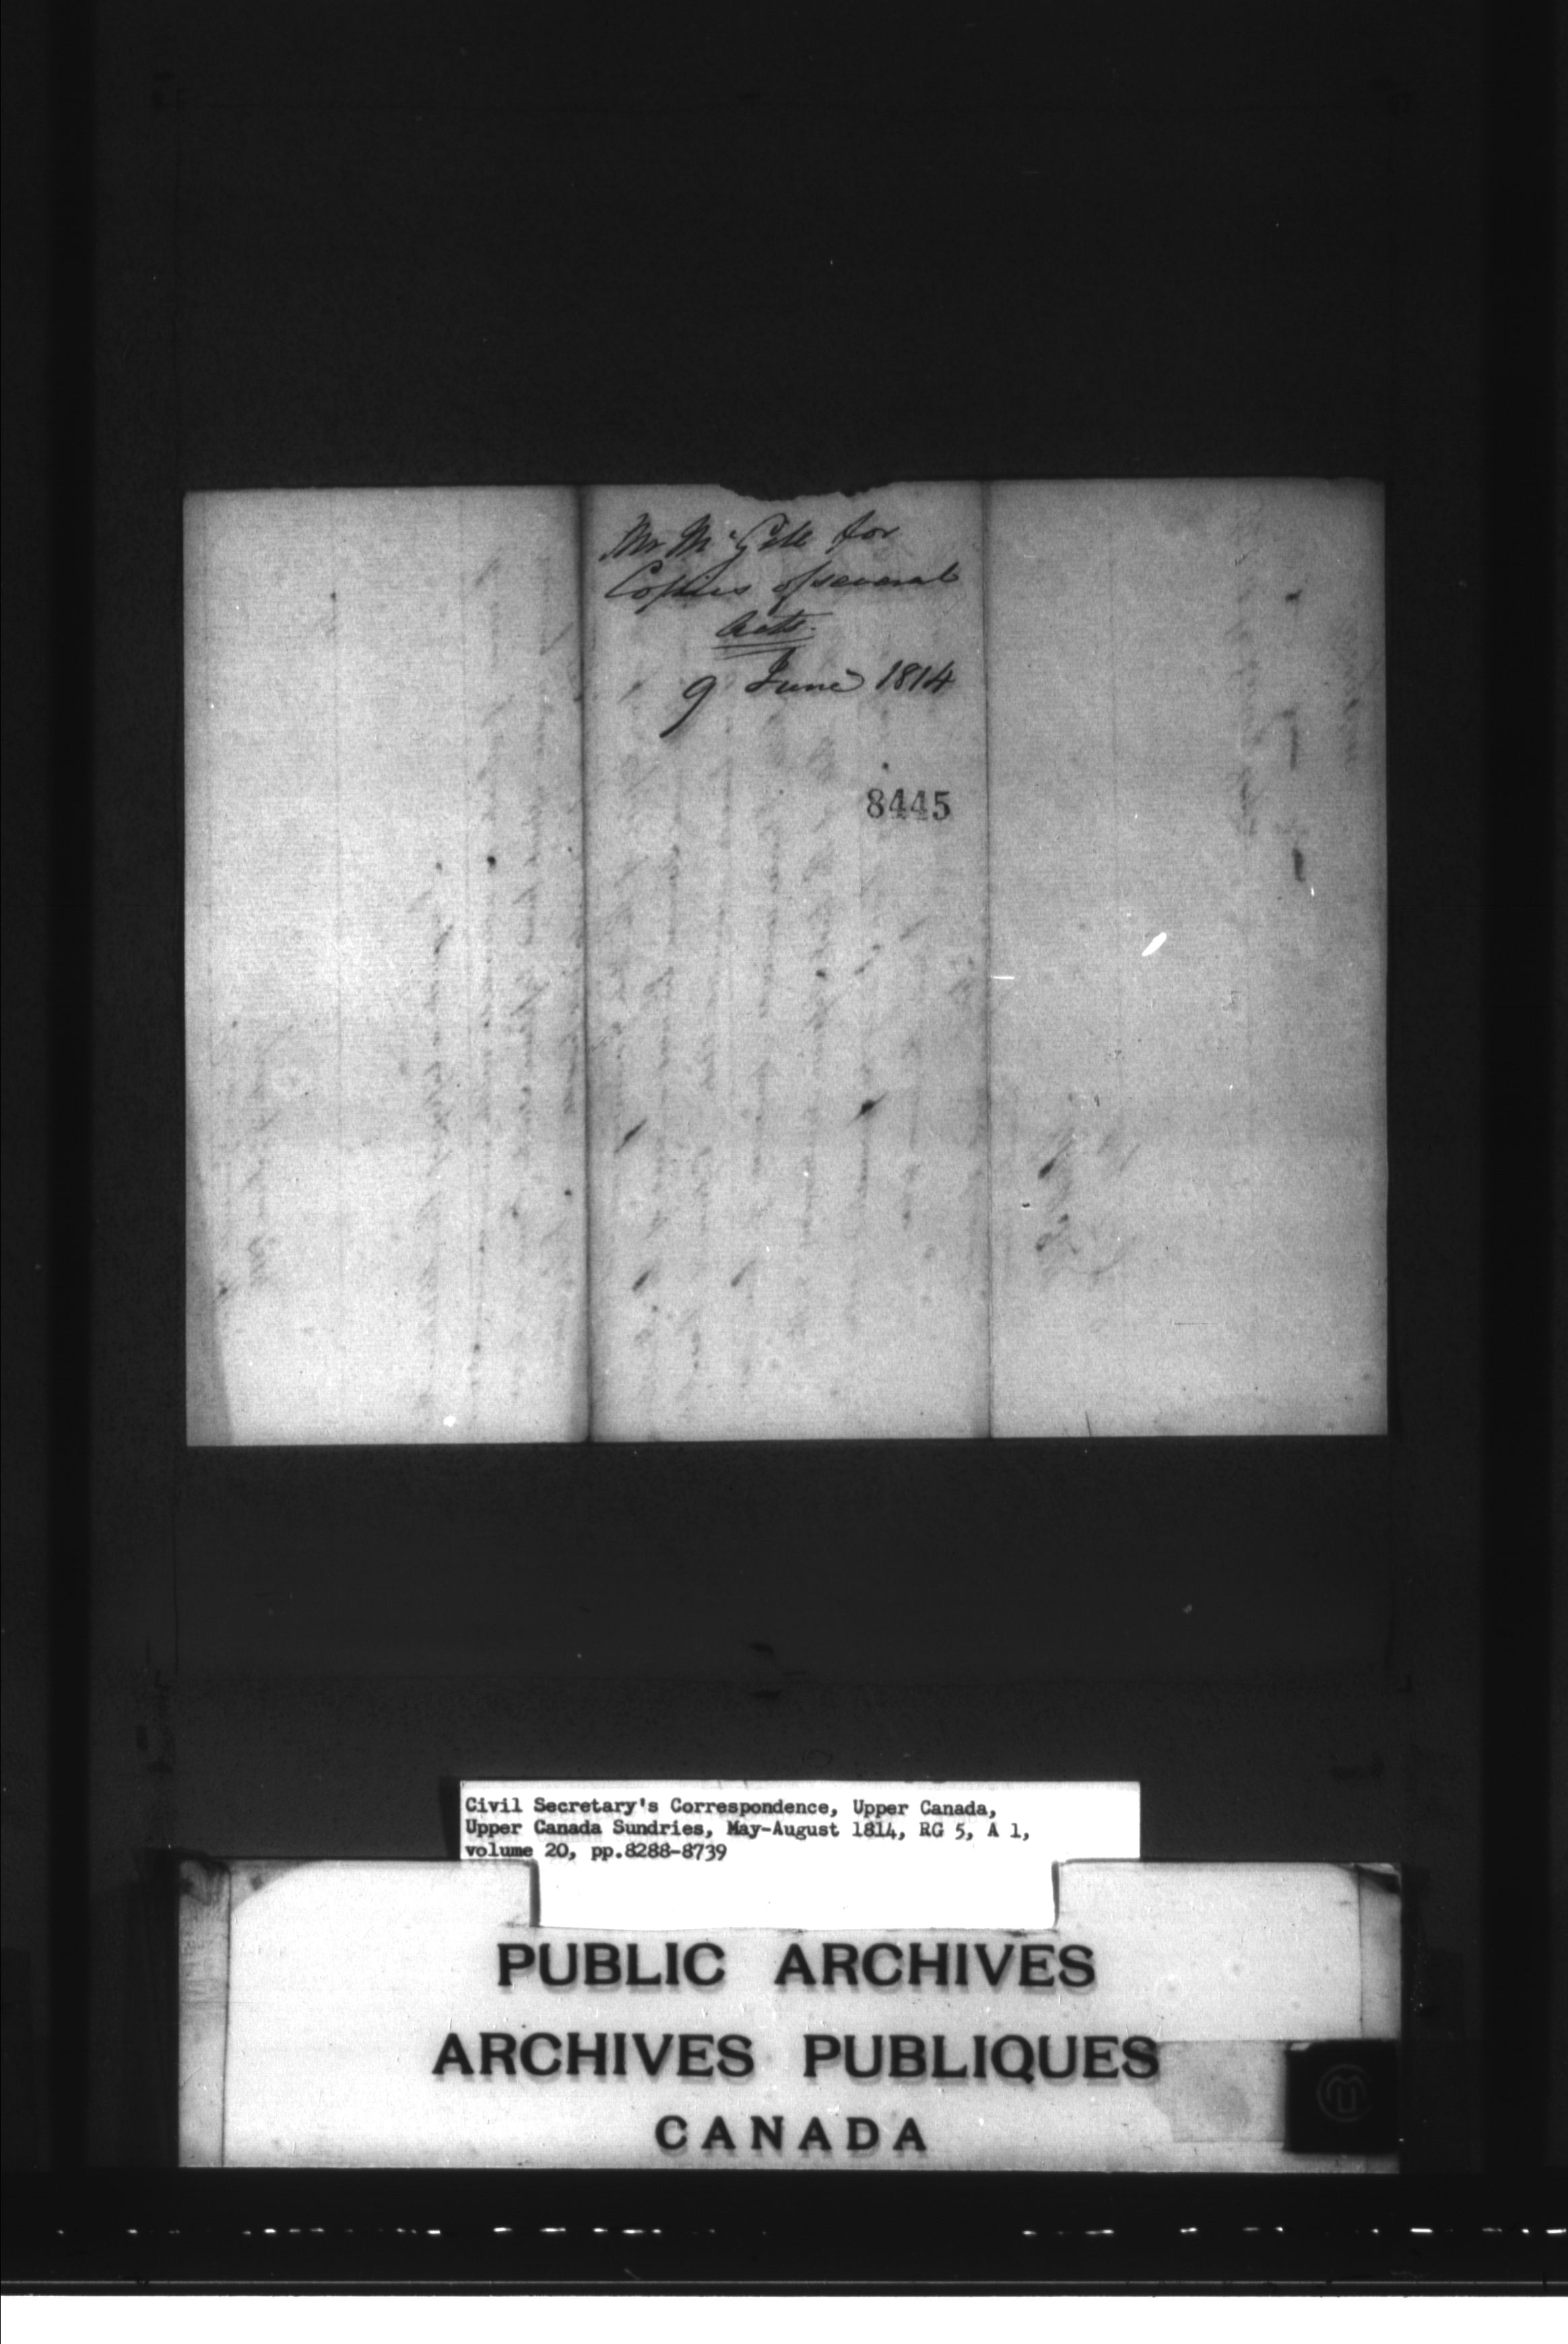 Mr McGill for
Copies of several
Acts.
9 June 1814
8445
Civil Secretary's Correspondence, Upper Canada,
Upper Canada Sundries, May-August 1814, RG 5, A 1,
volume 20, pp.8288-8739
PUBLIC ARCHIVES
ARCHIVES PUBLIQUES
CANADA